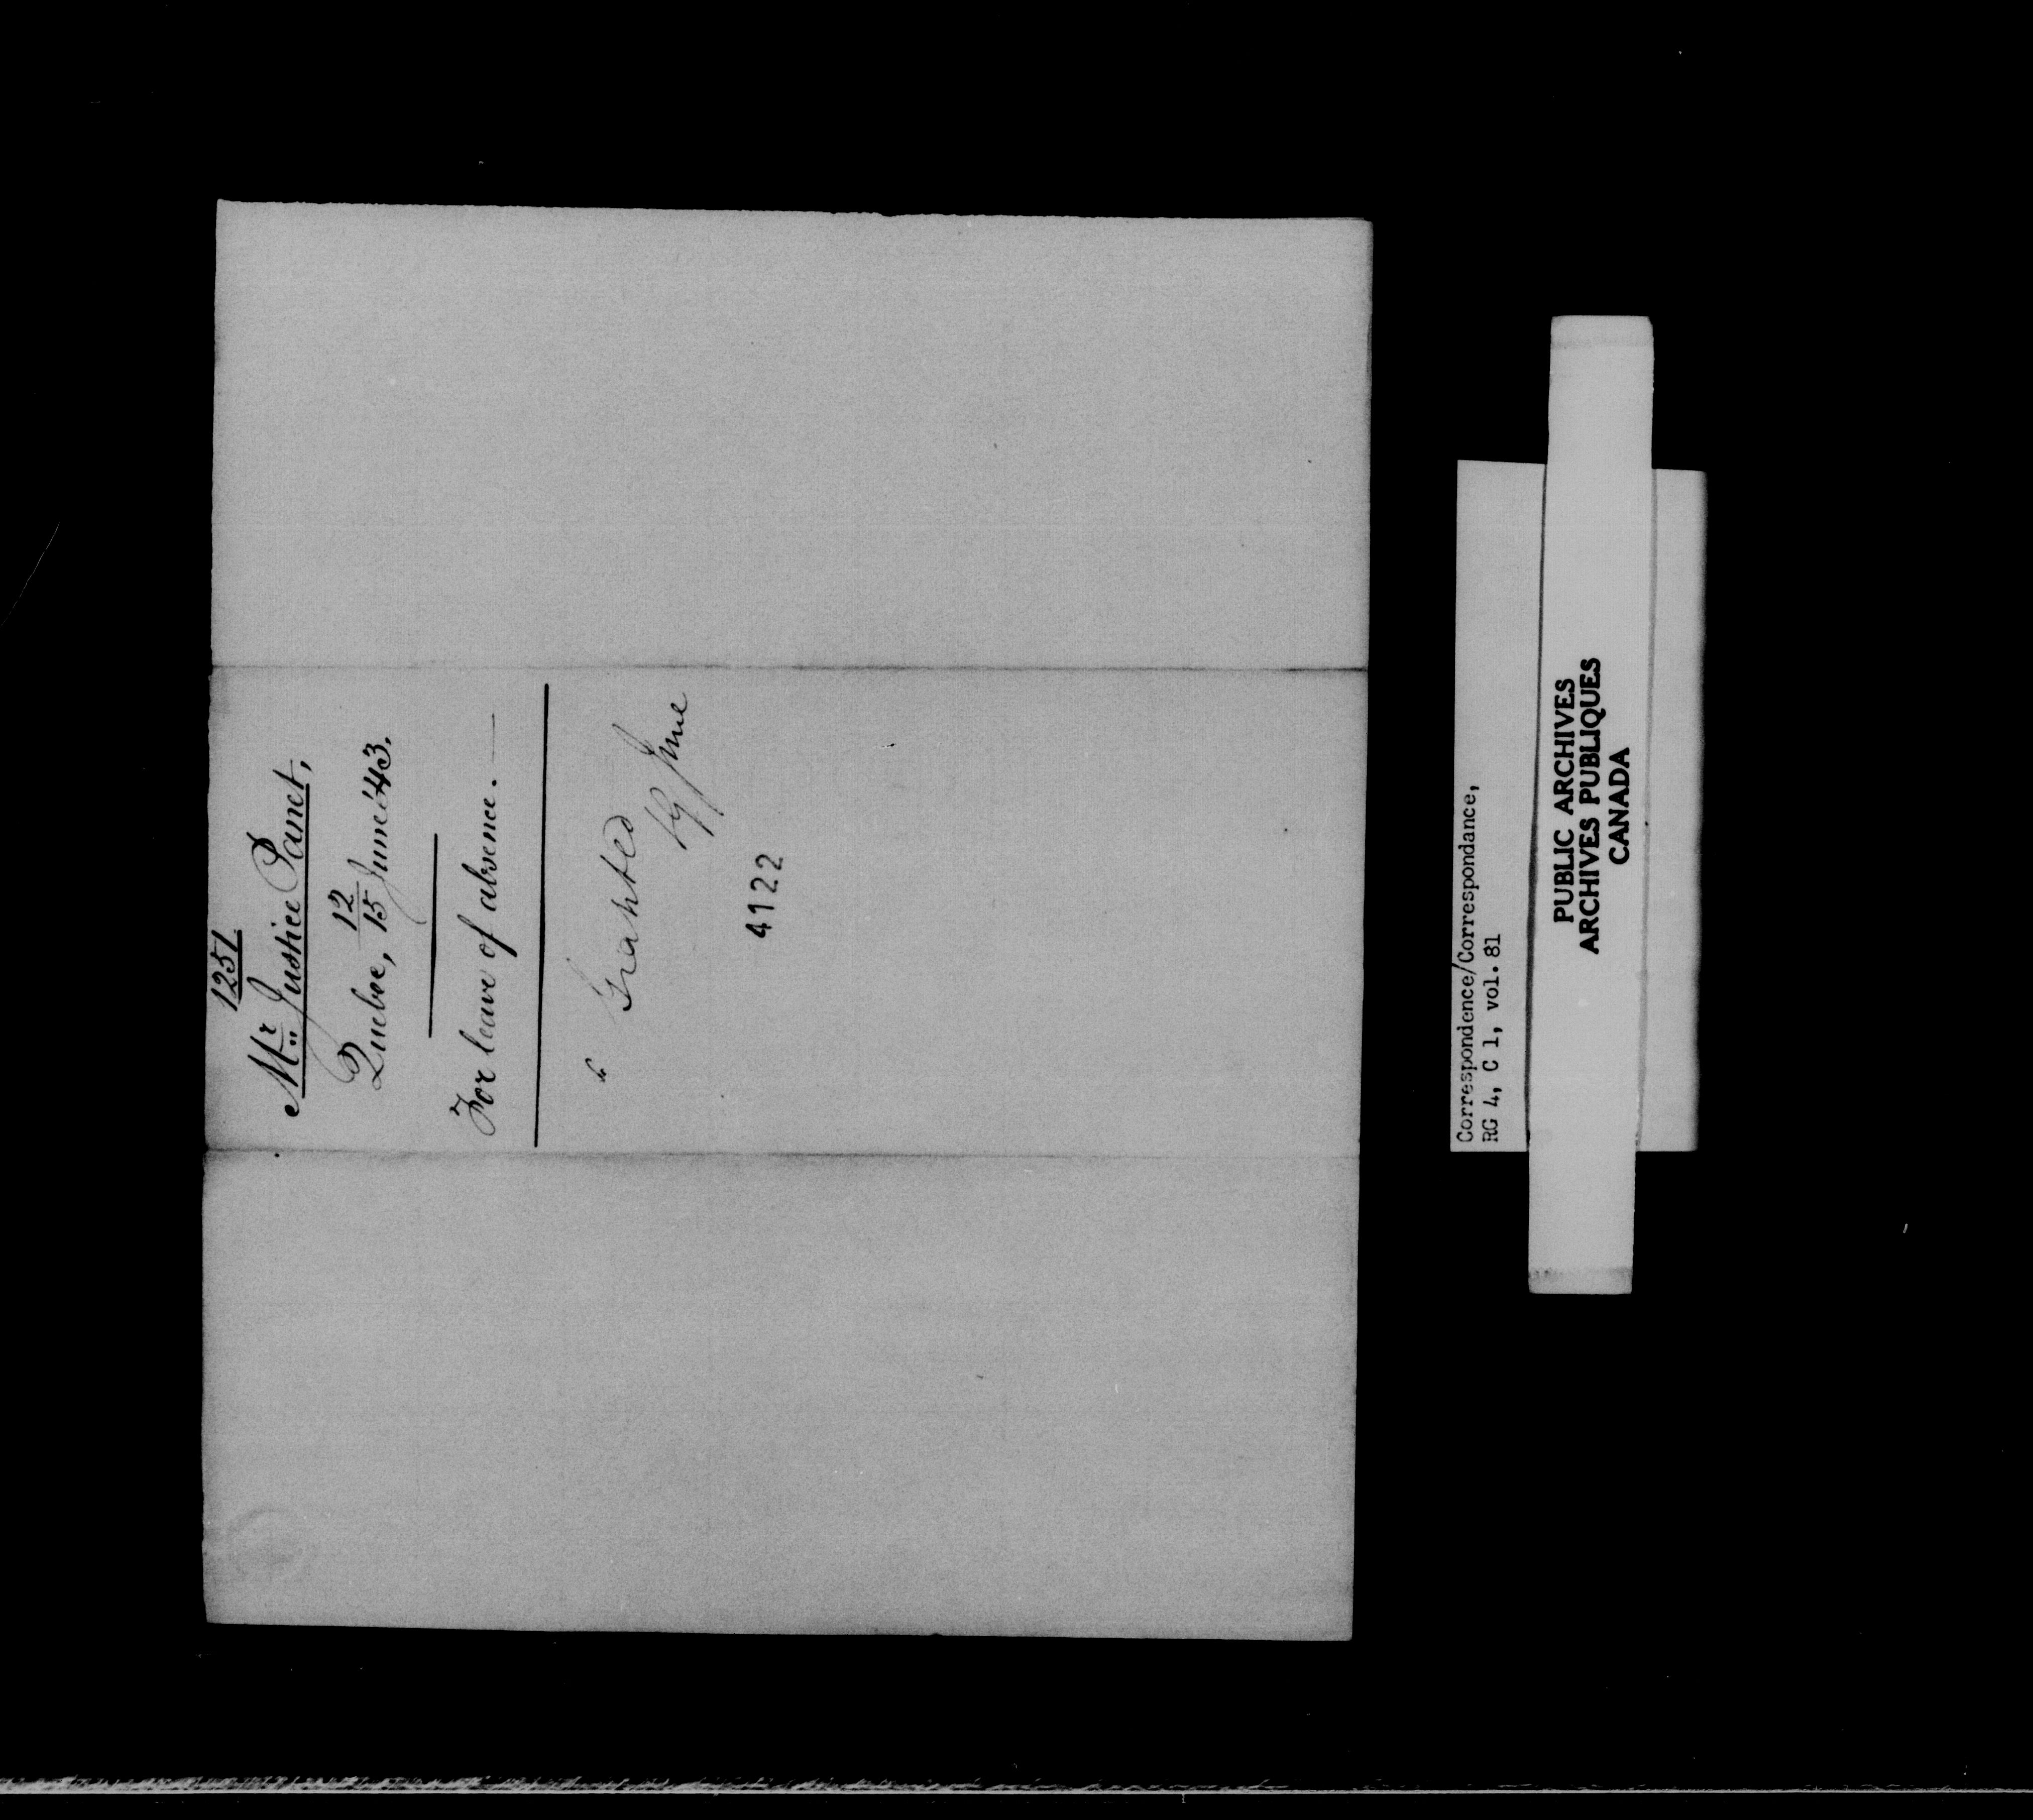 1251
Mr. Justice Panet,
Quebec, 12/15 June '43.
For leave of absence. —
Granted
June
4122
Correspondence/Correspondance,
RG 4, C 1, vol. 81
PUBLIC ARCHIVES
ARCHIVES PUBLIQUES
CANADA